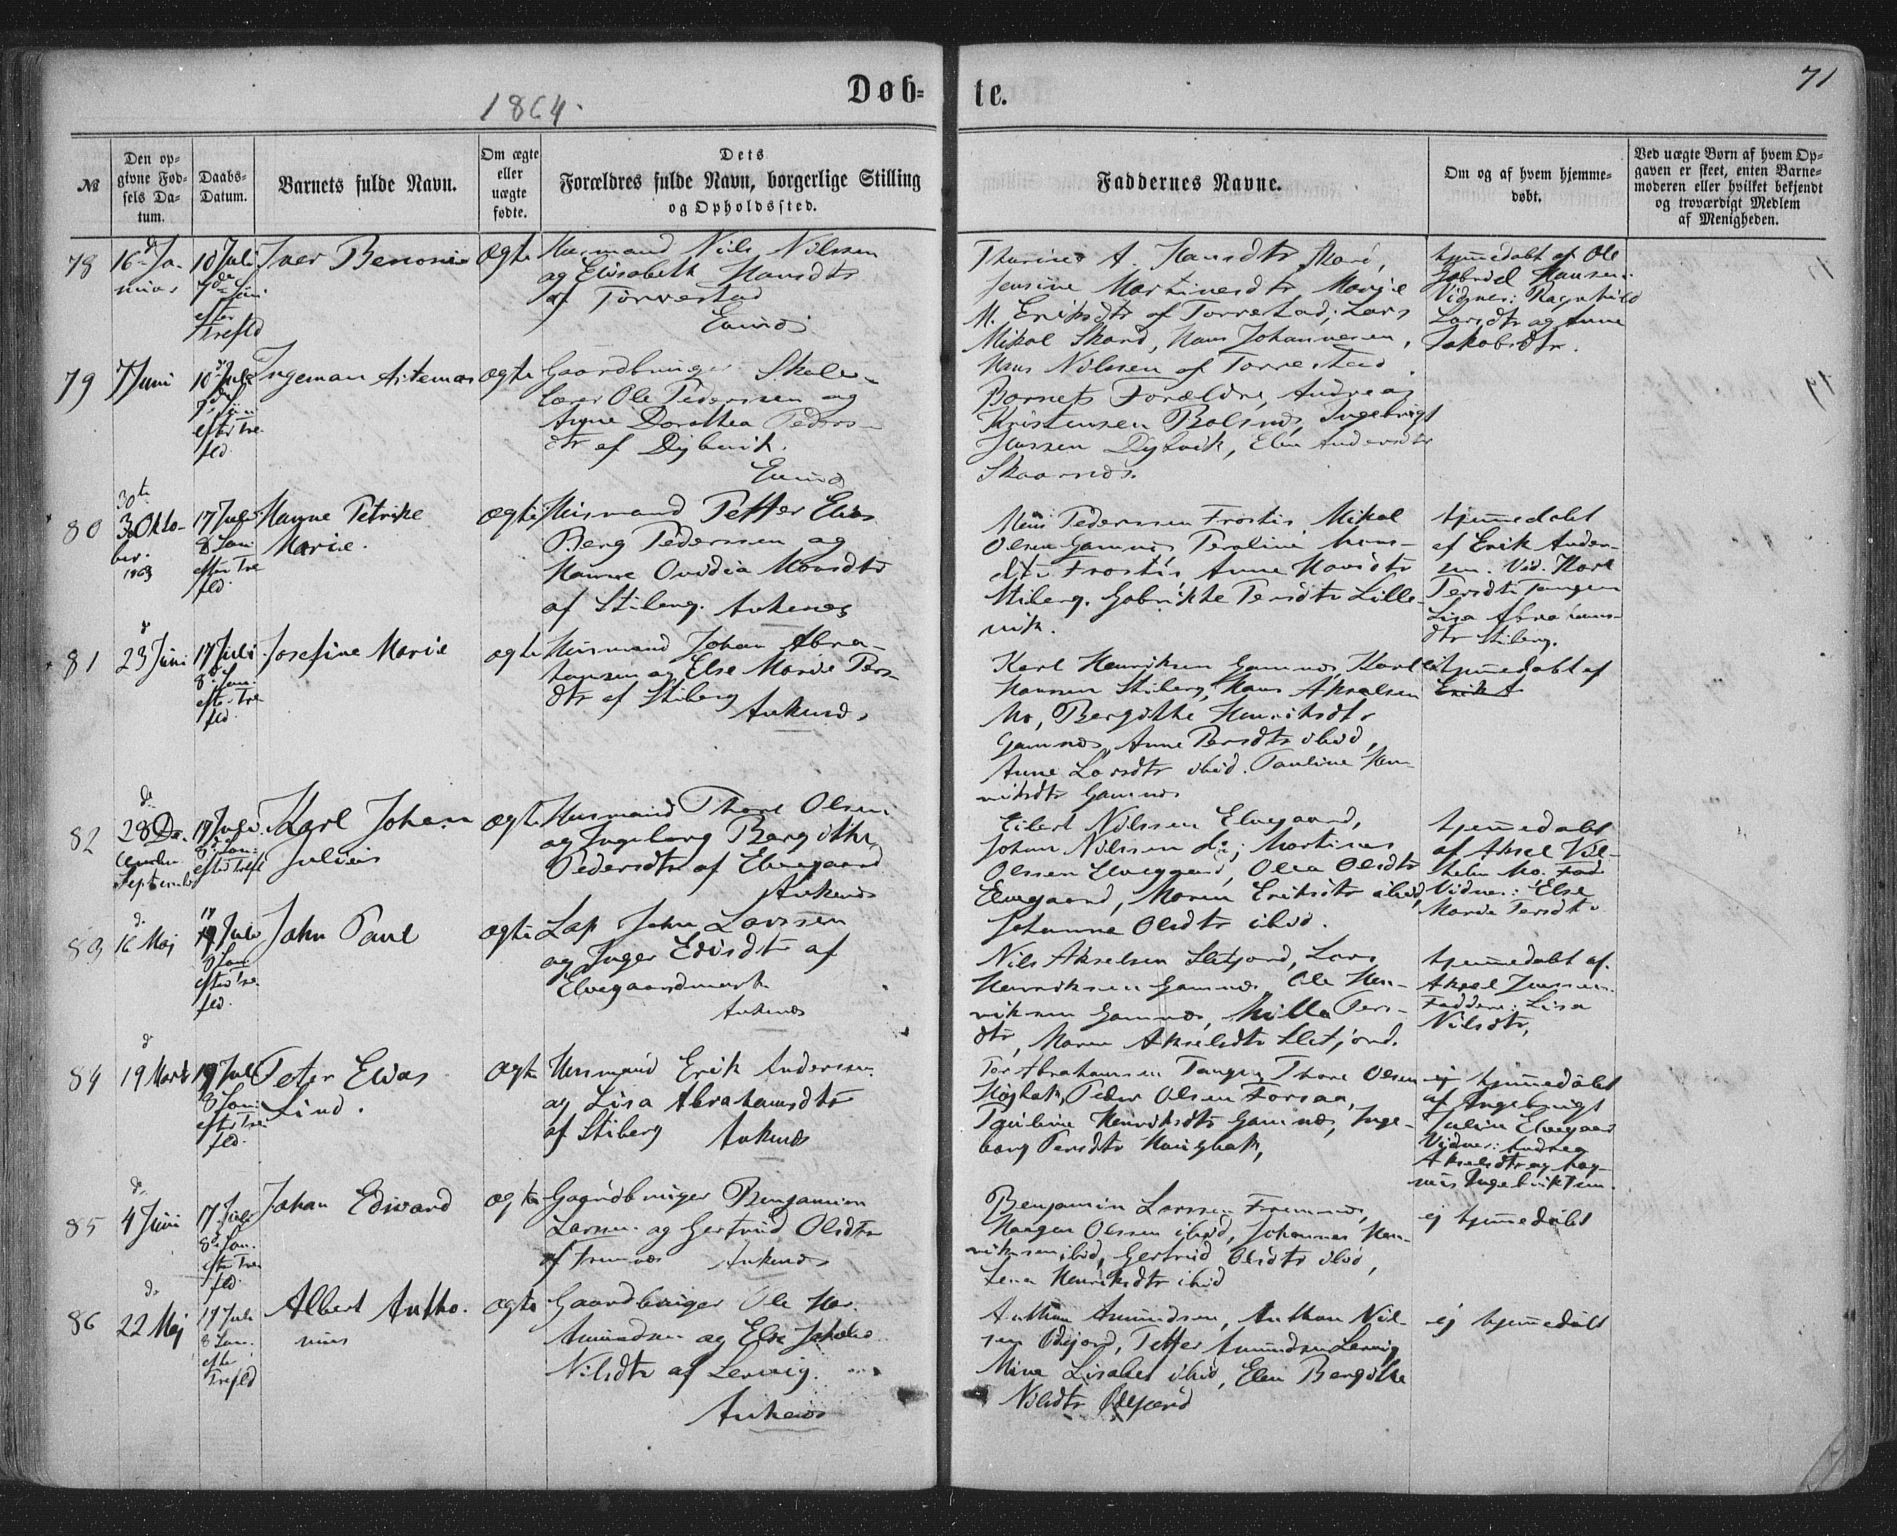 71
1864.
Døb-
te.
№
Den op-
givne Fød-
sels Da-
tum.
Daabs-
Datum.
Barnets fulde Navn.
Om ægte
eller
uægte
fødte.
Dets
Forældres fulde Navn, borgerlige Stilling
og Opholdssted.
Faddernes Navne.
Om og af hvem hjemme-
døbt.
Ved uægte Børn af hvem Op-
gaven er skeet, enten Barne-
moderen eller hvilket bekjendt
og troværdigt Medlem
af Menigheden.
78
16 Ja-
nuar
10 Juli
efter
Trefld
Iver Benoni
ægte
Husmand Nils Nilssen
og Elisabeth Hansdtr
af Tørrestad
Evnæs
A. Hansdtr
Jensine Martinesdtr Marie
M. Eriksdtr af Torrestad, Lars
Mikal Hans Johannesen,
Hans Nilssen af Torrestad
hjemmedøbt af Ole
Gabriel Hansen.
Vidner: Ragnhild
Larsdtr og Anne
Jakobsdtr.
79
7 Juni
10 Juli
efter Tre
fld
Ingeman Artemas
ægte
Gaardbruger Skole-
lærer Ole Pedersen og
Anne Dorothea Peders-
dtr af Dybvik.
Evnæs
Barnets Forældre, Andreas
Kristensen Bolsnæs, Ingebrigt
Jenssen Dybvik, Elen Andersdtr
Skaarnæs.
80
30te
Okto-
ber
1863
17 Juli
8 Søn
efter Tre
fld.
Hanne Petrike
Marie.
ægte
Husmand Petter Elias
Berg Pederssen og
Hanne Ovidia Monsdtr
af Stiberg. Ankenes
Pederssen Frostis, Mikal
Olsen Gamnes,
Frostis Anne
Stiberg. Persdtr Lille-
vik.
hjemmedøbt
af Erik Ander-
sen. Vid.
Persdtr Tangen
Lisa Abrahams-
dtr Stiberg.
81
23 Juni
17 Juli
8 Søn.
efter Tre
fld.
Josefine Marie
ægte
Husmand Johan Abra-
hamsen og Else Marie Pers-
dtr af Stiberg
Ankenæs
Karl Henriksen Gamnæs,
Hansen Stiberg, Hans Akselsen
Mo, Bergithe Henriksdtr
Gamnæs, Anne Persdtr ibid,
Anne Larsdtr ibid. Pauline Hen-
riksdtr Gamnæs
hjemmedøbt af
Erik A
82
28
September
17 Juli
8 Søn:
efter Trefl
Karl Johan
Julius
ægte
Husmand Thore Olsen
og Ingeborg Bergithe
Pedersdtr af Elvegaard
Ankenæs
Eilert Nilssen Elvegaard,
Johan Nilssen do; Martinus
Olssen Elvegaard, Olea Olsdtr
Elvegaard, Maren Eriksdtr ibid,
Johanne Olsdtr ibid.
hjemmedøbt
af Aksel Vil-
helm Mo. Fad
Vidner: Else
Marie Persdtr
83
16 Maj
17 Juli
8 Søn
efter Tre
fld.
John Paul
ægte
Lap John Larssen
og Inger
Elvegaardmark
Ankenæs
Nils Akselsen Sletjord, Lars
Henriksen Gamnæs Ole Hen-
riksen Gamnæs, Milla Pers-
dtr, Maren Akselsdtr Sletjord.
hjemmedøbt af.
Aksel
Faddere: Lisa
Nilsdtr,
84
19 Marts
17 Juli
8 Søn:
efter Tre
fld.
Peter Elias
Lind.
ægte
Husmand Erik Anderssen
og Lisa Abrahamsdtr
af Stiberg Ankenæs
Per Abrahamsen Tangen Thore Olsen
Peder Olsen Forsaa,
Pauline Henriksdtr Gamnæs, Inge-
borg Persdtr
hjemmedøbt
af Ingebrigt
Julin Elvegaard
Vidner: Andrea
Akselsdtr og Mag-
nus Ingebriktsen.
85
4 Juni
17 Juli
8 Søn.
efter Tre
fld.
Johan Edvard
ægte
Gaardbruger Benjamin
Larsen og Gertrud Olsdtr
af Fremnæs Ankenæs
Benjamin Larssen Fremnæs,
Haagen Olssen ibid, Johannes Hen-
riksen ibid, Gertrud Olsdtr ibid,
Lena Henriksdtr ibid
ej hjemmedøbt
86
22 Maj
17 Juli
8 Søn.
efter
Trefld
Albert Antho-
nius
ægte
Gaardbruger Ole
Amundsen og Else
Nilsdtr af Lervig.
Ankenæs
Anthon Amundsen, Anthon Nil-
sen Petter Amundsen Lervig
Mina Lisabet ibid, Elen Bergithe
Nilsdtr
ej hjemmedøbt